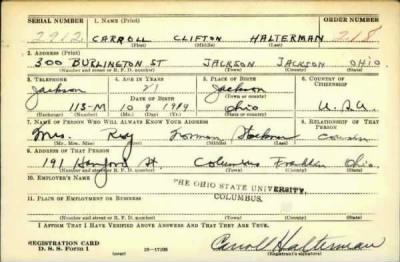 SERIAL NUMBER 1. NAME (Print) ORDER NUMBER
2912 CARROLL CLIFTON HALTERMAN 218
(First) (Middle) (Last)
2. ADDRESS (Print)
300 BURLINGTON ST JACKSON JACKSON OHIO
(Number and street or R. F. D. number) (Town) (County) (State)
3. TELEPHONE 4. AGE IN YEARS 5. PLACE OF BIRTH 6. COUNTRY OF CITIZENSHIP
Jackson 21 Jackson
DATE OF BIRTH
115-M 10 9 1919 Ohio U.S.A.
(Exchange) (Number) (Mo.) (Day) (Yr.) (State or country)
7. NAME OF PERSON WHO WILL ALWAYS KNOW YOUR ADDRESS 8. RELATIONSHIP OF THAT PERSON
Mrs. Roy Cousin
(Mr., Mrs., Miss) (First) (Middle) (Last)
9. ADDRESS OF THAT PERSON
191 St. Columbus Franklin Ohio
(Number and street or R. F. D. number) (Town) (County) (State)
10. EMPLOYER'S NAME
THE OHIO STATE UNIVERSITY,
COLUMBUS.
11. PLACE OF EMPLOYMENT OR BUSINESS
(Number and street or R. F. D. number) (Town) (County) (State)
I AFFIRM THAT I HAVE VERIFIED ABOVE ANSWERS AND THAT THEY ARE TRUE.
REGISTRATION CARD
D. S. S. Form 1 (over) Carroll Halterman
(Registrant's signature)